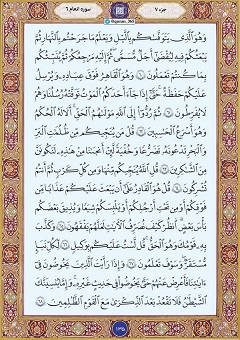 جزء ٧
سوره انعام ٦
وَهُوَ ٱلَّذِي يَتَوَفَّىٰكُم بِٱلَّيْلِ وَيَعْلَمُ مَا جَرَحْتُم بِٱلنَّهَارِ ثُمَّ
يَبْعَثُكُمْ فِيهِ لِيُقْضَىٰٓ أَجَلٌ مُّسَمًّى ثُمَّ إِلَيْهِ مَرْجِعُكُمْ ثُمَّ يُنَبِّئُكُم
بِمَا كُنتُمْ تَعْمَلُونَ ٦٠ وَهُوَ ٱلْقَاهِرُ فَوْقَ عِبَادِهِۦ وَيُرْسِلُ
عَلَيْكُمْ حَفَظَةً حَتَّىٰٓ إِذَا جَآءَ أَحَدَكُمُ ٱلْمَوْتُ تَوَفَّتْهُ رُسُلُنَا وَهُمْ
لَا يُفَرِّطُونَ ٦١ ثُمَّ رُدُّوٓا۟ إِلَى ٱللَّهِ مَوْلَىٰهُمُ ٱلْحَقِّ أَلَا لَهُ ٱلْحُكْمُ
وَهُوَ أَسْرَعُ ٱلْحَٰسِبِينَ ٦٢ قُلْ مَن يُنَجِّيكُم مِّن ظُلُمَٰتِ ٱلْبَرِّ
وَٱلْبَحْرِ تَدْعُونَهُۥ تَضَرُّعًا وَخُفْيَةً لَّئِنْ أَنجَىٰنَا مِنْ هَٰذِهِۦ لَنَكُونَنَّ
مِنَ ٱلشَّٰكِرِينَ ٦٣ قُلِ ٱللَّهُ يُنَجِّيكُم مِّنْهَا وَمِن كُلِّ كَرْبٍ ثُمَّ أَنتُمْ
تُشْرِكُونَ ٦٤ قُلْ هُوَ ٱلْقَادِرُ عَلَىٰٓ أَن يَبْعَثَ عَلَيْكُمْ عَذَابًا مِّن
فَوْقِكُمْ أَوْ مِن تَحْتِ أَرْجُلِكُمْ أَوْ يَلْبِسَكُمْ شِيَعًا وَيُذِيقَ بَعْضَكُم
بَأْسَ بَعْضٍ ٱنظُرْ كَيْفَ نُصَرِّفُ ٱلْءَايَٰتِ لَعَلَّهُمْ يَفْقَهُونَ ٦٥ وَكَذَّبَ
بِهِۦ قَوْمُكَ وَهُوَ ٱلْحَقُّ قُل لَّسْتُ عَلَيْكُم بِوَكِيلٍ ٦٦ لِّكُلِّ نَبَإٍ
مُّسْتَقَرٌّ وَسَوْفَ تَعْلَمُونَ ٦٧ وَإِذَا رَأَيْتَ ٱلَّذِينَ يَخُوضُونَ فِيٓ
ءَايَٰتِنَا فَأَعْرِضْ عَنْهُمْ حَتَّىٰ يَخُوضُوا۟ فِي حَدِيثٍ غَيْرِهِۦ وَإِمَّا يُنسِيَنَّكَ
ٱلشَّيْطَٰنُ فَلَا تَقْعُدْ بَعْدَ ٱلذِّكْرَىٰ مَعَ ٱلْقَوْمِ ٱلظَّٰلِمِينَ ٦٨
١٣٥